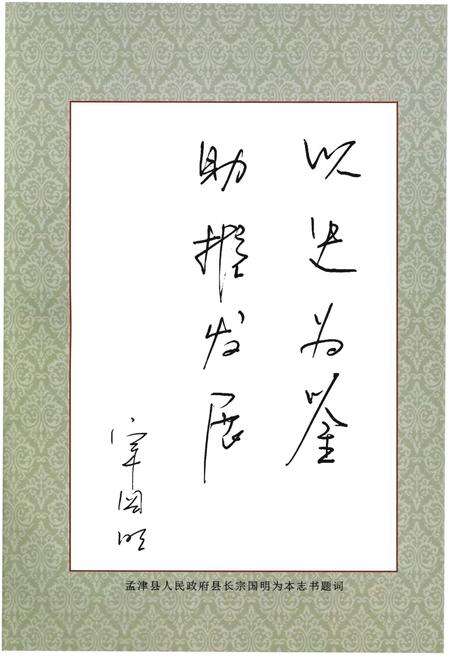 以史为鉴
助推发展
宗国明
孟津县人民政府县长宗国明为本志书题词